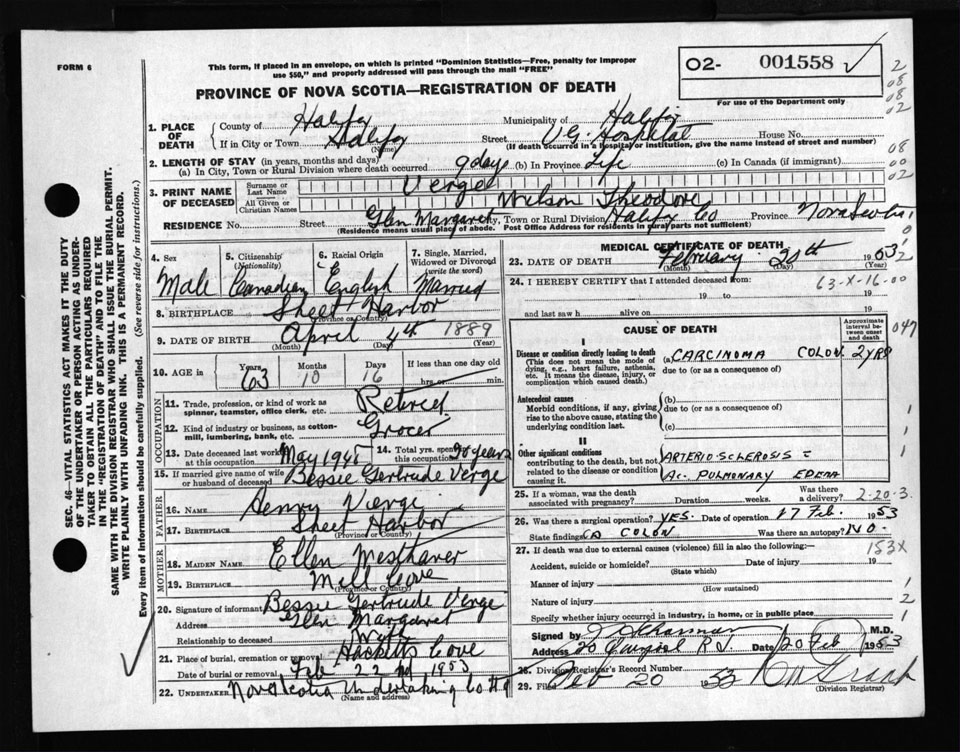 FORM 6
This form, if placed in an envelope, on which is printed "Dominion Statistics—Free, penalty for improper
use $50," and properly addressed will pass through the mail "FREE"
02- 001558
For use of the Department only
PROVINCE OF NOVA SCOTIA—REGISTRATION OF DEATH
1. PLACE OF DEATH
County of Halifax Municipality of Halifax
If in City or Town Halifax (Name) Street V.G. Hospital House No.
(If death occurred in a hospital or institution, give the name instead of street and number)
2. LENGTH OF STAY (in years, months and days)
(a) In City, Town or Rural Division where death occurred 9 days (b) In Province Life (c) In Canada (if immigrant)
3. PRINT NAME OF DECEASED
Surname or Last Name Verge
All Given or Christian Names Wilson Theodore
RESIDENCE No. Street Glen Margaret City, Town or Rural Division Halifax Co Province Nova Scotia
(Residence means usual place of abode. Post Office Address for residents in rural parts not sufficient)
4. Sex Male
5. Citizenship (Nationality) Canadian
6. Racial Origin English
7. Single, Married, Widowed or Divorced (write the word) Married
8. BIRTHPLACE Sheet Harbor
(Province or Country)
9. DATE OF BIRTH April 4th 1889
(Month) (Day) (Year)
10. AGE in Years 63 Months 10 Days 16 If less than one day old hrs or min.
OCCUPATION
11. Trade, profession, or kind of work as
spinner, teamster, office clerk, etc. Retired
12. Kind of industry or business, as cotton-
mill, lumbering, bank, etc. Grocer
13. Date deceased last worked at this occupation May 1948
14. Total yrs. spent in this occupation 20 years
15. If married give name of wife
or husband of deceased Bessie Gertrude Verge
FATHER
16. NAME Henry Verge
17. BIRTHPLACE Sheet Harbor
(Province or Country)
MOTHER
18. MAIDEN NAME Ellen Westhaver
19. BIRTHPLACE Mill Cove
(Province or Country)
20. Signature of informant Bessie Gertrude Verge
Address Glen Margaret
Relationship to deceased Wife
21. Place of burial, cremation or removal Hacketts Cove
Date of burial or removal Feb 22nd 1953
22. UNDERTAKER Nova Scotia Undertaking Co Ltd
(Name and address)
MEDICAL CERTIFICATE OF DEATH
23. DATE OF DEATH February 20th 1953
(Month) (Day) (Year)
24. I HEREBY CERTIFY that I attended deceased from 63-X-16-00
19 to 19
and last saw h alive on 19
CAUSE OF DEATH
Approximate interval between onset and death
I
Disease or condition directly leading to death
(This does not mean the mode of
dying, e.g., heart failure, asthenia,
etc. It means the disease, injury, or
complication which caused death.)
(a) CARCINOMA COLON 2 YRS
due to (or as a consequence of)
Antecedent causes
Morbid conditions, if any, giving
rise to the above cause, stating the
underlying condition last.
(b)
due to (or as a consequence of)
(c)
II
Other significant conditions
contributing to the death, but not
related to the disease or condition
causing it.
ARTERIO-SCLEROSIS
Ac. PULMONARY EDEMA
25. If a woman, was the death
associated with pregnancy? Duration weeks. Was there a delivery? 2-20-3
26. Was there a surgical operation? YES. Date of operation 17 Feb. 1953
State findings CA COLON Was there an autopsy? NO.
27. If death was due to external causes (violence) fill in also the following:— 153X
Accident, suicide or homicide? Date of injury 19
(State which)
Manner of injury
(How sustained)
Nature of injury
Specify whether injury occurred in industry, in home, or in public place
Signed by M.D.
Address Date 20 Feb 1953
28. Division Registrar's Record Number
29. Filed Feb 20 1953
(Division Registrar)
SEC. 46—VITAL STATISTICS ACT MAKES IT THE DUTY
OF THE UNDERTAKER OR PERSON ACTING AS UNDER-
TAKER TO OBTAIN ALL THE PARTICULARS REQUIRED
IN THE "REGISTRATION OF DEATH" AND TO FILE THE
SAME WITH THE DIVISION REGISTRAR WHO SHALL ISSUE THE BURIAL PERMIT.
WRITE PLAINLY WITH UNFADING INK. THIS IS A PERMANENT RECORD.
Every item of information should be carefully supplied. (See reverse side for instructions.)
2
08
08
02
08
00
02
1
0
2
047
1
1
1
2
1